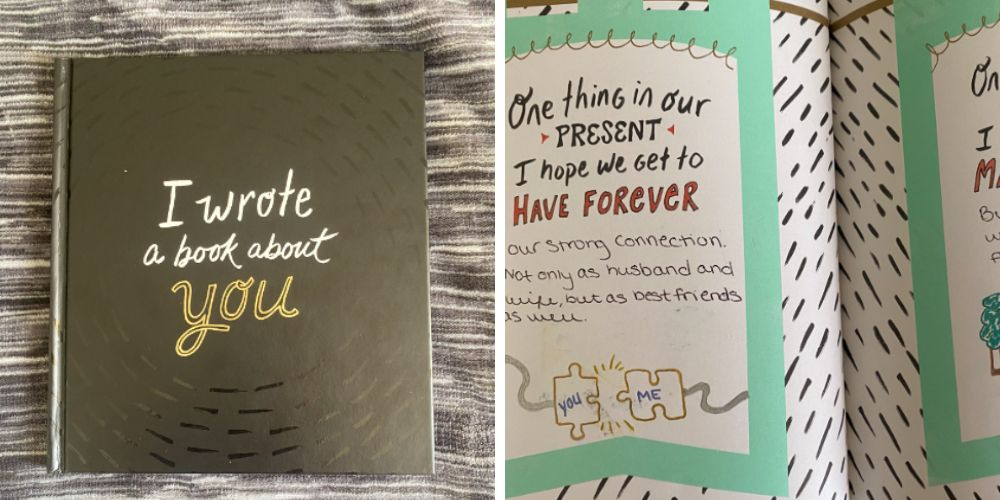 I wrote
a book about
you
One thing in our
PRESENT
I hope we get to
HAVE FOREVER
our strong connection.
Not only as husband and
wife, but as best friends
as well.
you
ME
On
I
MA
Bu
w
f